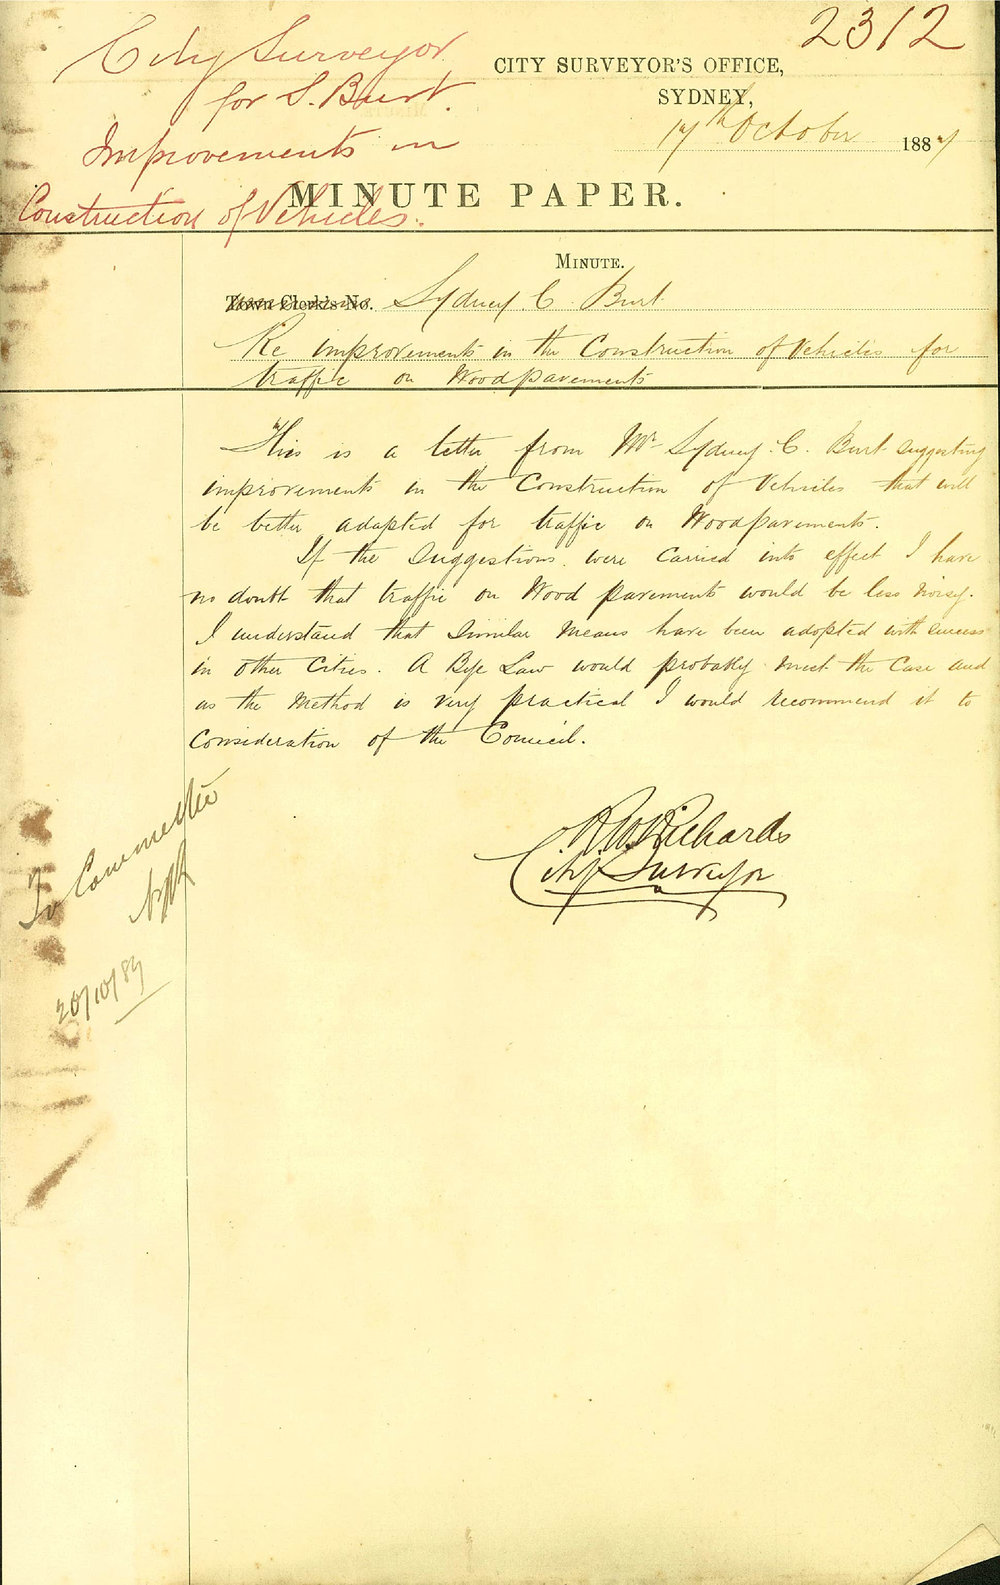 2312
City Surveyor
for S. Burt.
Improvements in
Construction of Vehicles.
CITY SURVEYOR'S OFFICE,
SYDNEY,
17th October 1887
MINUTE PAPER.
MINUTE.
Town Clerk's No. Sydney. C. Burt
Re improvements in the Construction of Vehicles for
traffic on Woodpavements
This is a letter from Mr Sydney. C. Burt suggesting
improvements in the Construction of Vehicles that will
be better adapted for traffic on Woodpavements.
If the suggestions were carried into effect I have
no doubt that traffic on Wood pavements would be less noisy.
I understand that similar means have been adopted with success
in other Cities. A Bye Law would probably meet the Case and
as the Method is very practical I would recommend it to
Consideration of the Council.
R. W. Richards
City Surveyor
To Committee
20/10/87